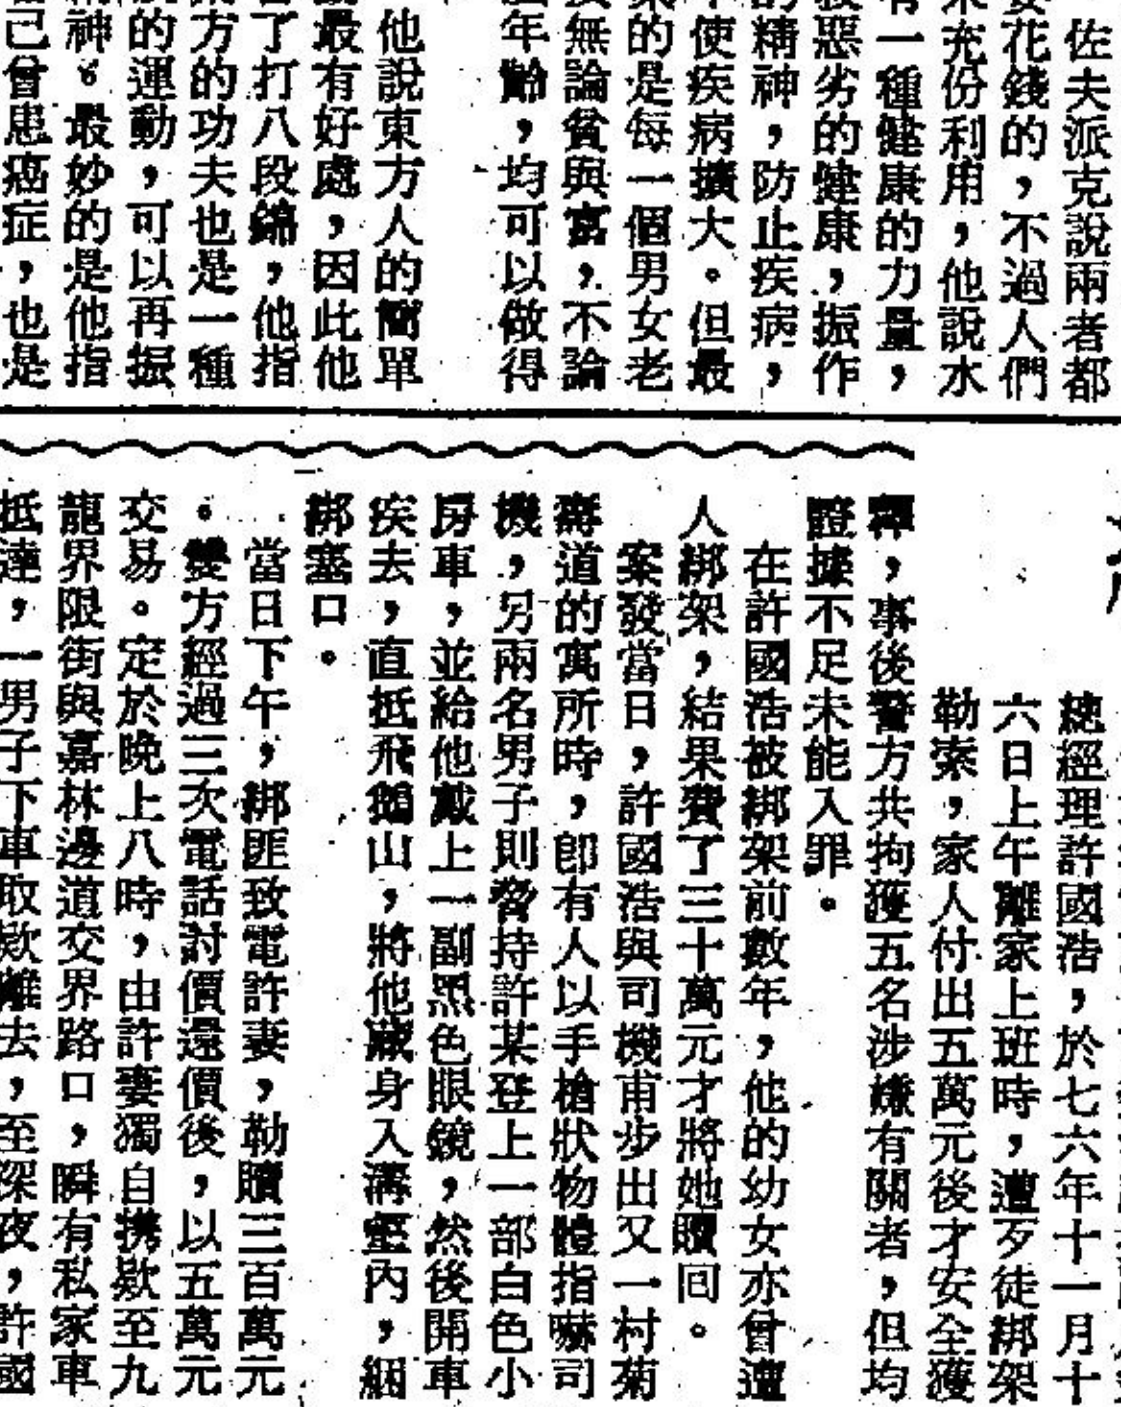 佐夫派克說兩者都
要花錢的，不過人們
未充份利用，他說水
有一種健康的力量，
惡劣的健康，振作
的精神，防止疾病，
使疾病擴大。但最
的是每一個男女老
無論貧與富，不論
年齡，均可以做得
他說東方人的簡單
最有好處，因此他
了打八段錦，他指
方的功夫也是一種
的運動，可以再振
神。最妙的是他指
己曾患癌症，也是
總經理許國浩，於七六年十一月十
六日上午離家上班時，遭歹徒綁架
勒索，家人付出五萬元後才安全獲
釋，事後警方共拘獲五名涉嫌有關者，但均
證據不足未能入罪。
在許國浩被綁架前數年，他的幼女亦曾遭
人綁架，結果費了三十萬元才將她贖回。
案發當日，許國浩與司機甫步出又一村菊
壽道的寓所時，即有人以手槍狀物體指嚇司
機，另兩名男子則脅持許某登上一部白色小
房車，並給他戴上一副黑色眼鏡，然後開車
疾去，直抵飛鵝山，將他藏身入溝壑內，綑
綁塞口。
當日下午，綁匪致電許妻，勒贖三百萬元
。雙方經過三次電話討價還價後，以五萬元
交易。定於晚上八時，由許妻獨自携款至九
龍界限街與嘉林邊道交界路口，瞬有私家車
抵達，一男子下車取款離去，至深夜，許國